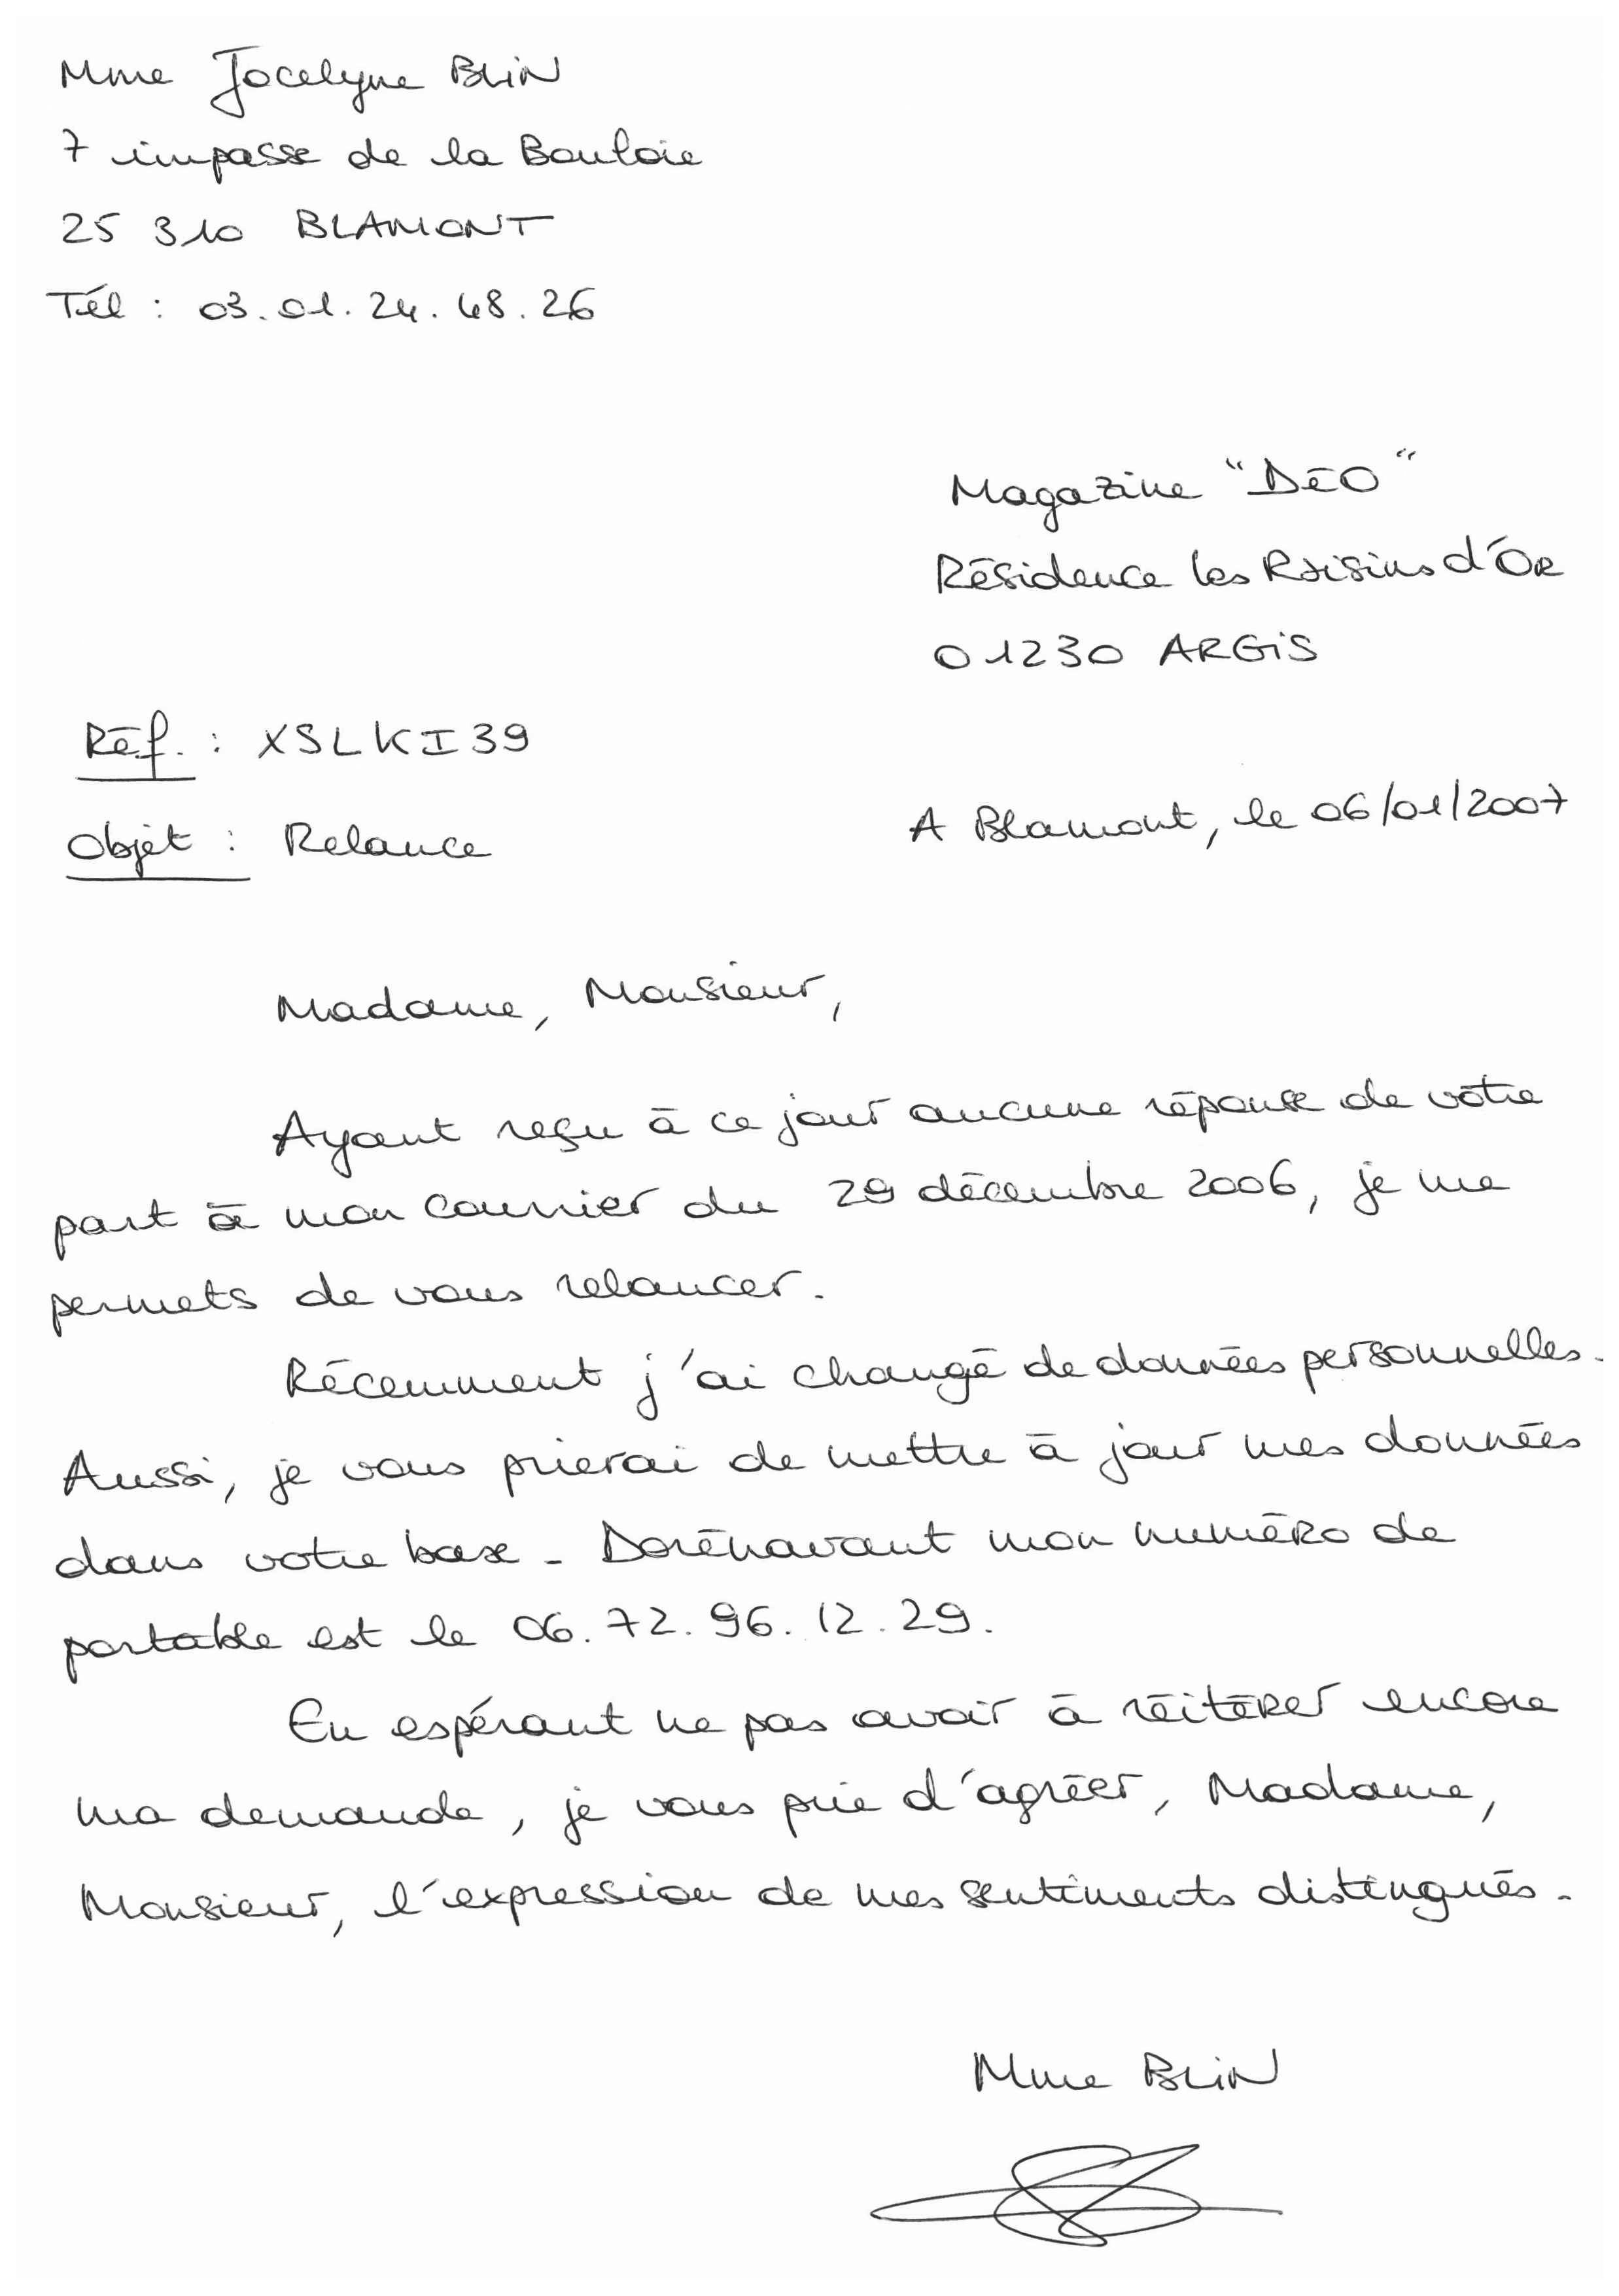 Mme Jocelyne BLIN
7 impasse de la Bouloie
25 310 BLAMONT
Tél : 03.01.24.48.26
Magazine "DéO"
Résidence les Raisins d'Or
01230 ARGIS
Réf. : XSLKI39
A Blamont, le 06/01/2007
Objet : Relance
Madame, Monsieur,
Ayant reçu à ce jour aucune réponse de votre
part à mon courrier du 29 décembre 2006, je me
permets de vous relancer.
Récemment j'ai changé de données personnelles.
Aussi, je vous prierai de mettre à jour mes données
dans votre base. Dorénavant mon numéro de
portable est le 06.72.96.12.29.
En espérant ne pas avoir à réitérer encore
ma demande, je vous prie d'agréer, Madame,
Monsieur, l'expression de mes sentiments distingués.
Mme BLIN